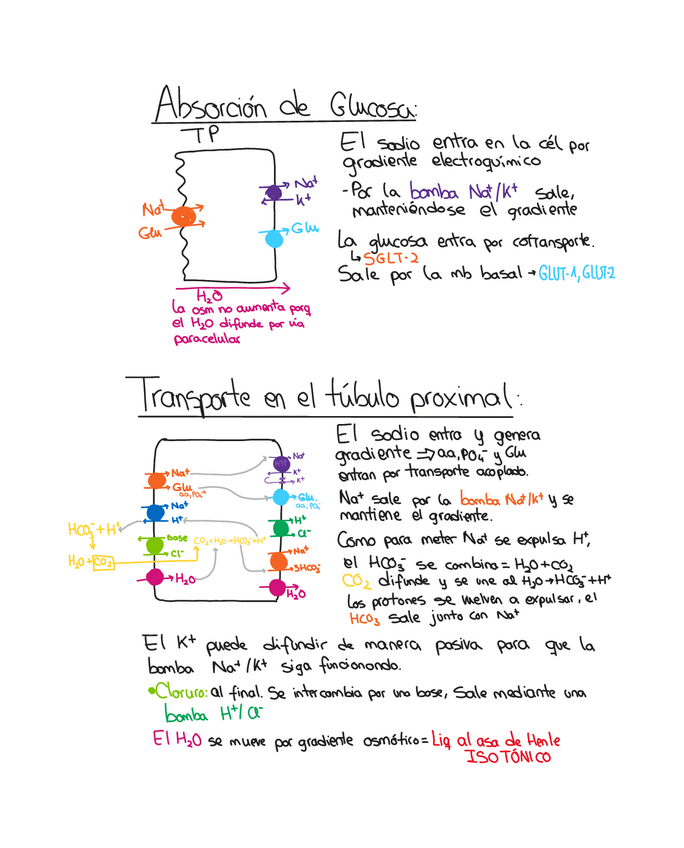 Absorción de Glucosa:
TP
Na+
Glu
Na+
K+
Glu
H2O
La osm no aumenta porq
el H2O difunde por vía
paracelular
El sodio entra en la cél por
gradiente electroquímico
-Por la bomba Na+/K+ sale,
manteniéndose el gradiente
La glucosa entra por cotransporte.
↳SGLT-2
Sale por la mb basal → GLUT-1, GLUT-2
Transporte en el túbulo proximal:
Na+
Glu
aa, PO4-
Na+
H+
base
Cl-
H2O
HCO3- + H+
H2O + CO2
CO2 + H2O → HCO3- + H+
Na+
K+
K+
Glu
aa, PO4-
H+
Cl-
Na+
3HCO3-
H2O
El sodio entra y genera
gradiente ⇒ aa, PO4- y Glu
entran por transporte acoplado.
Na+ sale por la bomba Na+/K+ y se
mantiene el gradiente.
Como para meter Na+ se expulsa H+,
el HCO3- se combina = H2O + CO2
CO2 difunde y se une al H2O → HCO3- + H+
Los protones se vuelven a expulsar, el
HCO3 sale junto con Na+
El K+ puede difundir de manera pasiva para que la
bomba Na+/K+ siga funcionando.
•Cloruro: al final. Se intercambia por una base, Sale mediante una
bomba H+/Cl-
El H2O se mueve por gradiente osmótico = Liq al asa de Henle
ISOTÓNICO